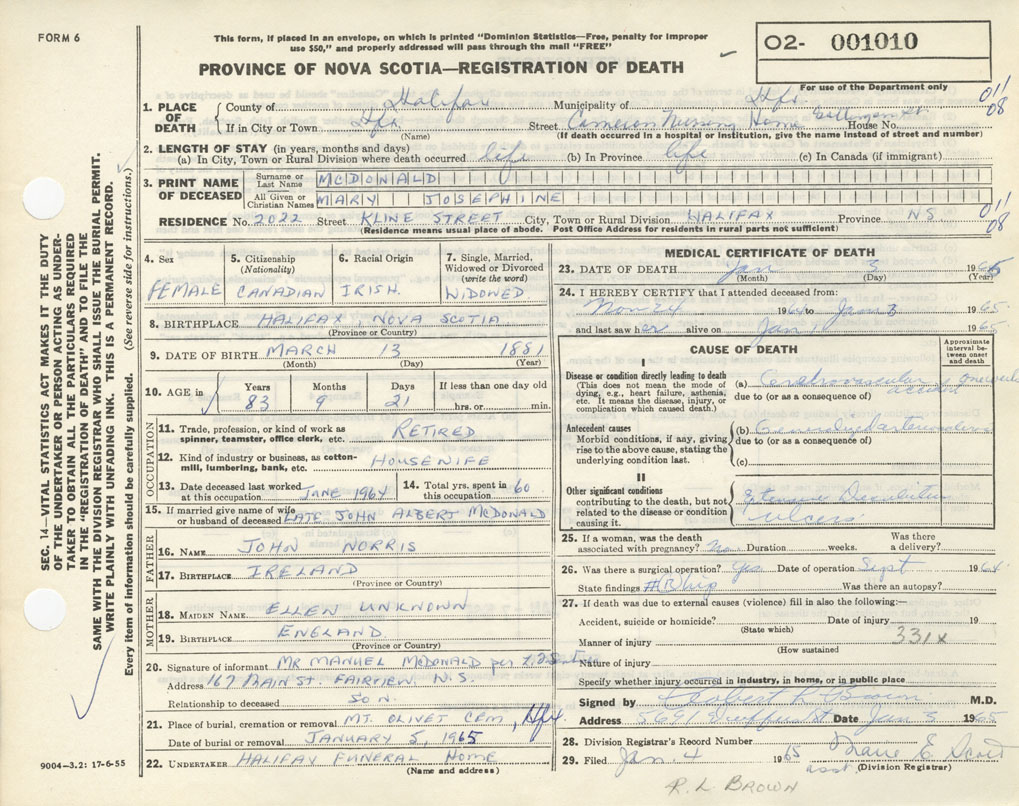 FORM 6
This form, if placed in an envelope, on which is printed "Dominion Statistics—Free, penalty for improper
use $50," and properly addressed will pass through the mail "FREE"
02- 001010
For use of the Department only
PROVINCE OF NOVA SCOTIA—REGISTRATION OF DEATH
011
08
1. PLACE OF DEATH
County of Halifax Municipality of Hfx.
If in City or Town Hfx. Street Cameron Nursing Home House No.
(Name) (If death occurred in a hospital or institution, give the name instead of street and number)
2. LENGTH OF STAY (in years, months and days)
(a) In City, Town or Rural Division where death occurred life (b) In Province life (c) In Canada (if immigrant)
3. PRINT NAME OF DECEASED
Surname or Last Name MCDONALD
All Given or Christian Names MARY JOSEPHINE
RESIDENCE No. 2022 Street KLINE STREET City, Town or Rural Division HALIFAX Province N.S.
(Residence means usual place of abode. Post Office Address for residents in rural parts not sufficient)
011
08
4. Sex FEMALE
5. Citizenship (Nationality) CANADIAN
6. Racial Origin IRISH
7. Single, Married, Widowed or Divorced (write the word) WIDOWED
8. BIRTHPLACE HALIFAX, NOVA SCOTIA
(Province or Country)
9. DATE OF BIRTH MARCH 13 1881
(Month) (Day) (Year)
10. AGE in Years 83 Months 9 Days 21 If less than one day old hrs. or min.
OCCUPATION
11. Trade, profession, or kind of work as spinner, teamster, office clerk, etc. RETIRED
12. Kind of industry or business, as cotton-mill, lumbering, bank, etc. HOUSEWIFE
13. Date deceased last worked at this occupation JUNE 1964
14. Total yrs. spent in this occupation 60
15. If married give name of wife or husband of deceased LATE JOHN ALBERT MCDONALD
FATHER
16. NAME JOHN NORRIS
17. BIRTHPLACE IRELAND
(Province or Country)
MOTHER
18. MAIDEN NAME ELLEN UNKNOWN
19. BIRTHPLACE ENGLAND
(Province or Country)
20. Signature of informant MR MANUEL MCDONALD per
Address 167 MAIN ST. FAIRVIEW, N.S.
Relationship to deceased SON
21. Place of burial, cremation or removal MT. OLIVET CEM, Hfx.
Date of burial or removal JANUARY 5, 1965
22. UNDERTAKER HALIFAX FUNERAL HOME
(Name and address)
MEDICAL CERTIFICATE OF DEATH
23. DATE OF DEATH Jan 3 1965
(Month) (Day) (Year)
24. I HEREBY CERTIFY that I attended deceased from:
Nov 24 1964 to Jan 3 1965
and last saw her alive on Jan 1 1965
CAUSE OF DEATH
Approximate interval between onset and death
I
Disease or condition directly leading to death
(This does not mean the mode of dying, e.g., heart failure, asthenia, etc. It means the disease, injury, or complication which caused death.)
(a) Cerebrovascular accident one week
due to (or as a consequence of)
Antecedent causes
Morbid conditions, if any, giving rise to the above cause, stating the underlying condition last.
(b) Generalized arteriosclerosis
due to (or as a consequence of)
(c)
II
Other significant conditions
contributing to the death, but not related to the disease or condition causing it.
Extensive Decubitus
ulcers
25. If a woman, was the death associated with pregnancy? No Duration weeks. Was there a delivery?
26. Was there a surgical operation? Yes Date of operation Sept 1964
State findings # hip Was there an autopsy?
27. If death was due to external causes (violence) fill in also the following:—
Accident, suicide or homicide? Date of injury 19
(State which)
331x
Manner of injury
(How sustained
Nature of injury
Specify whether injury occurred in industry, in home, or in public place
Signed by Robert L Brown M.D.
Address 5691 Date Jan 3 1965
28. Division Registrar's Record Number
29. Filed Jan. 4 1965
asst. (Division Registrar)
R. L. BROWN
SEC. 14—VITAL STATISTICS ACT MAKES IT THE DUTY
OF THE UNDERTAKER OR PERSON ACTING AS UNDER-
TAKER TO OBTAIN ALL THE PARTICULARS REQUIRED
IN THE "REGISTRATION OF DEATH" AND TO FILE THE
SAME WITH THE DIVISION REGISTRAR WHO SHALL ISSUE THE BURIAL PERMIT.
WRITE PLAINLY WITH UNFADING INK. THIS IS A PERMANENT RECORD.
Every item of information should be carefully supplied. (See reverse side for instructions.)
9004-3.2: 17-6-55